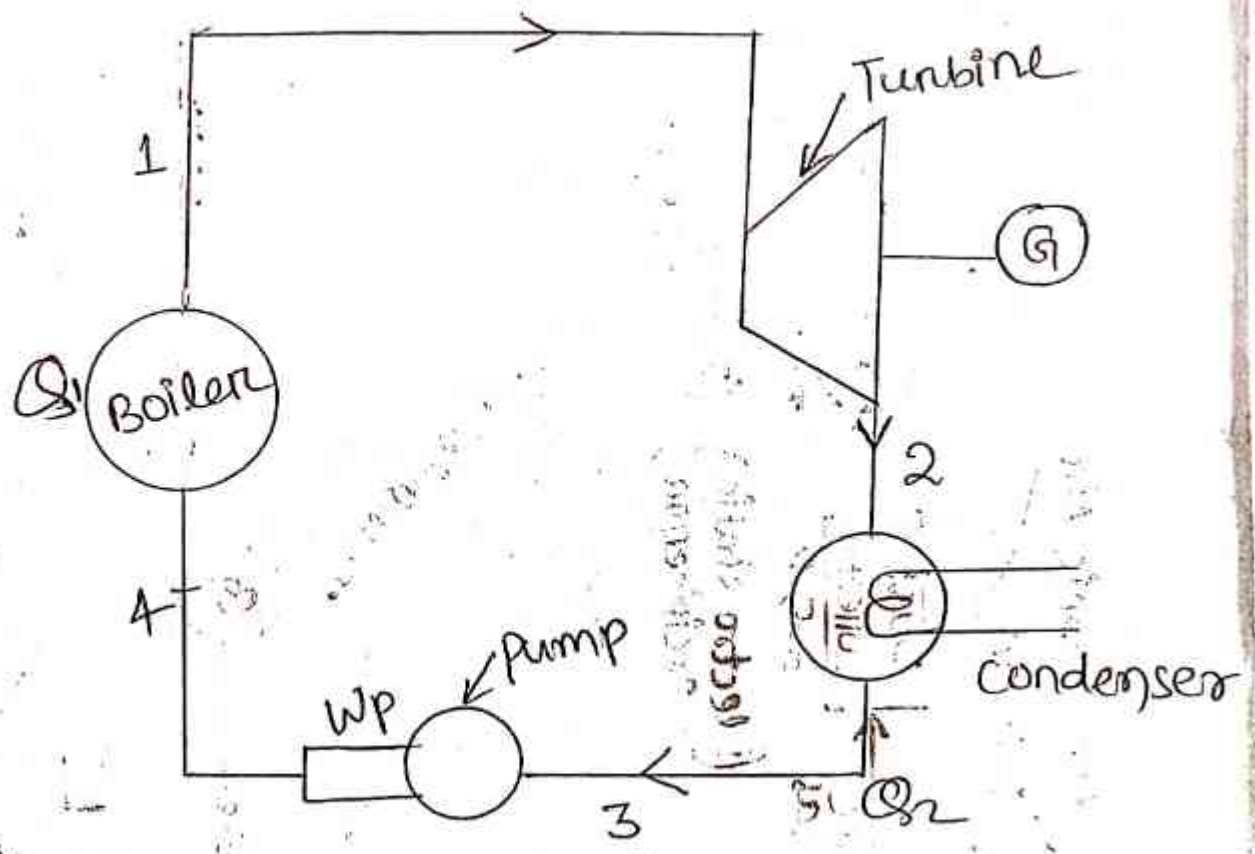 Turbine
1
G
Q1
Boiler
2
4
pump
Wp
condenser
3
Q2